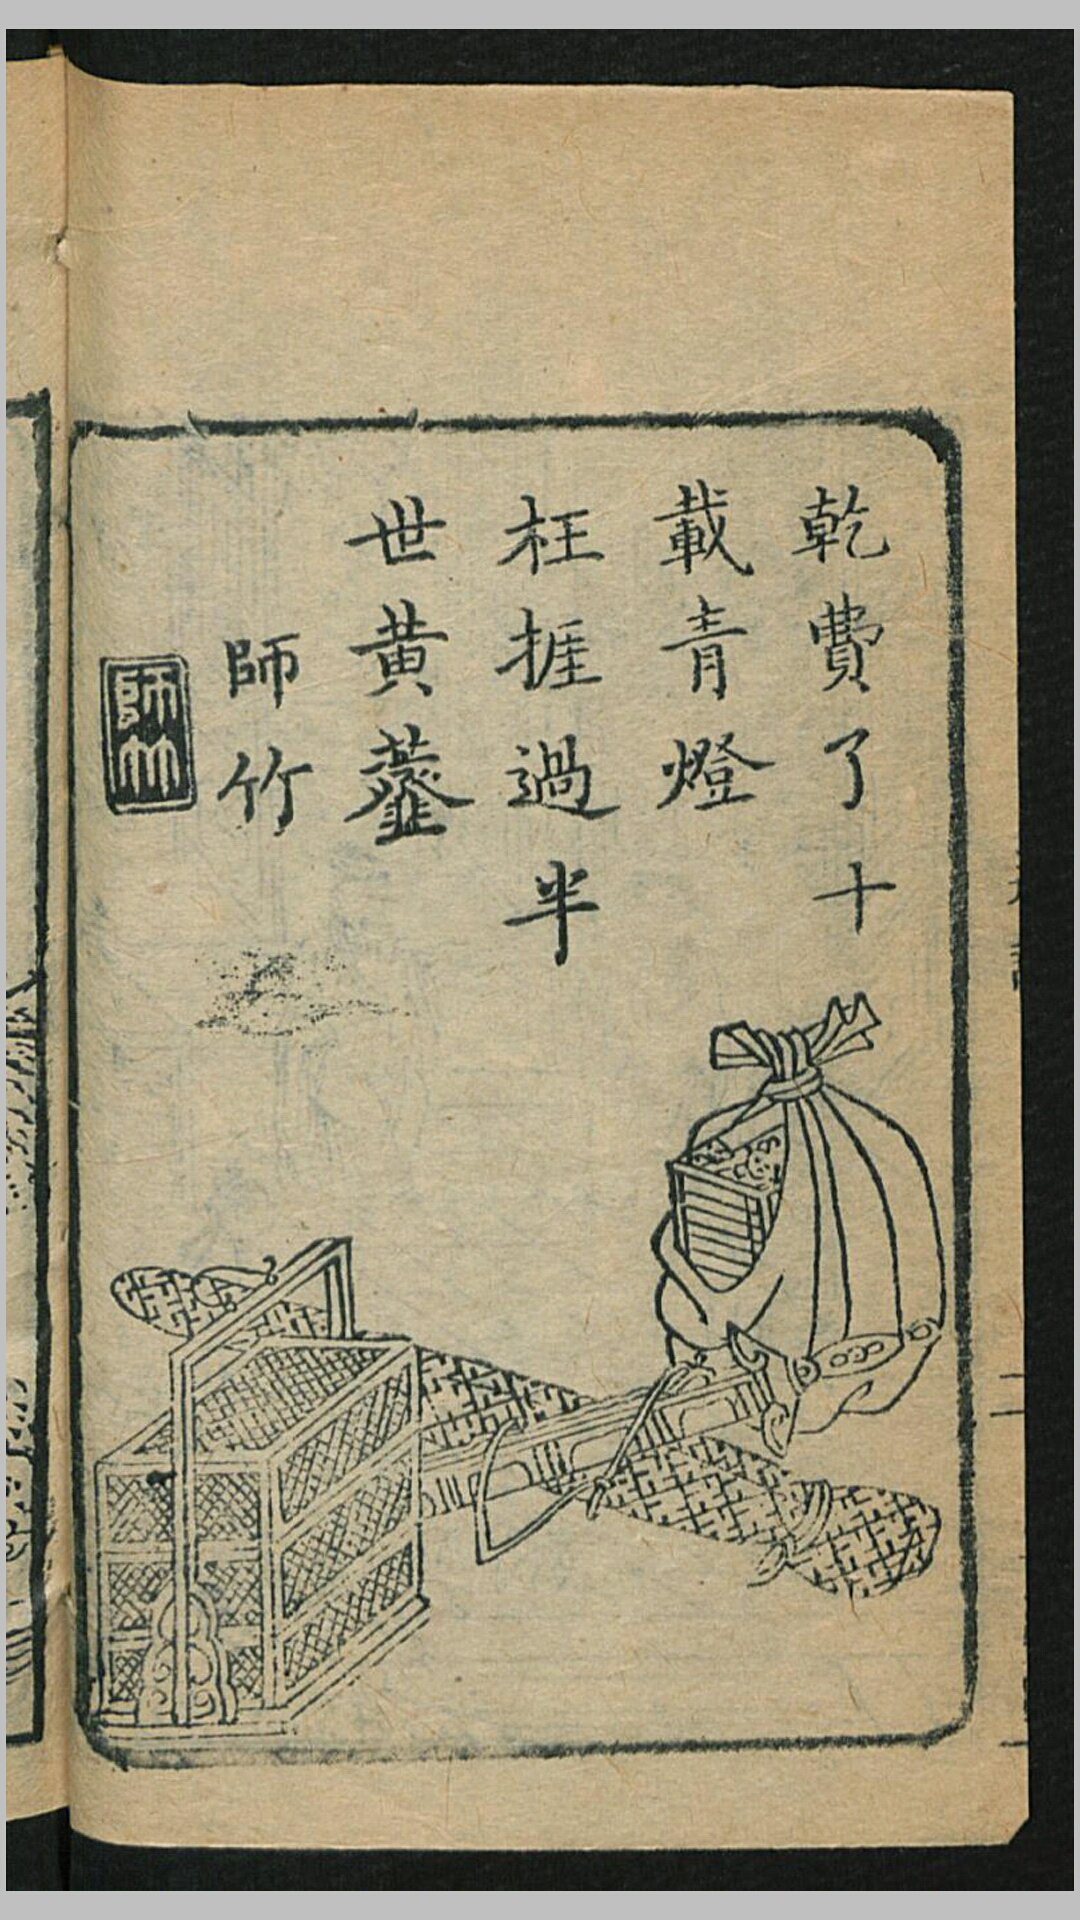 乾費了十
載青燈
枉捱過半
世黄虀
師竹
師竹